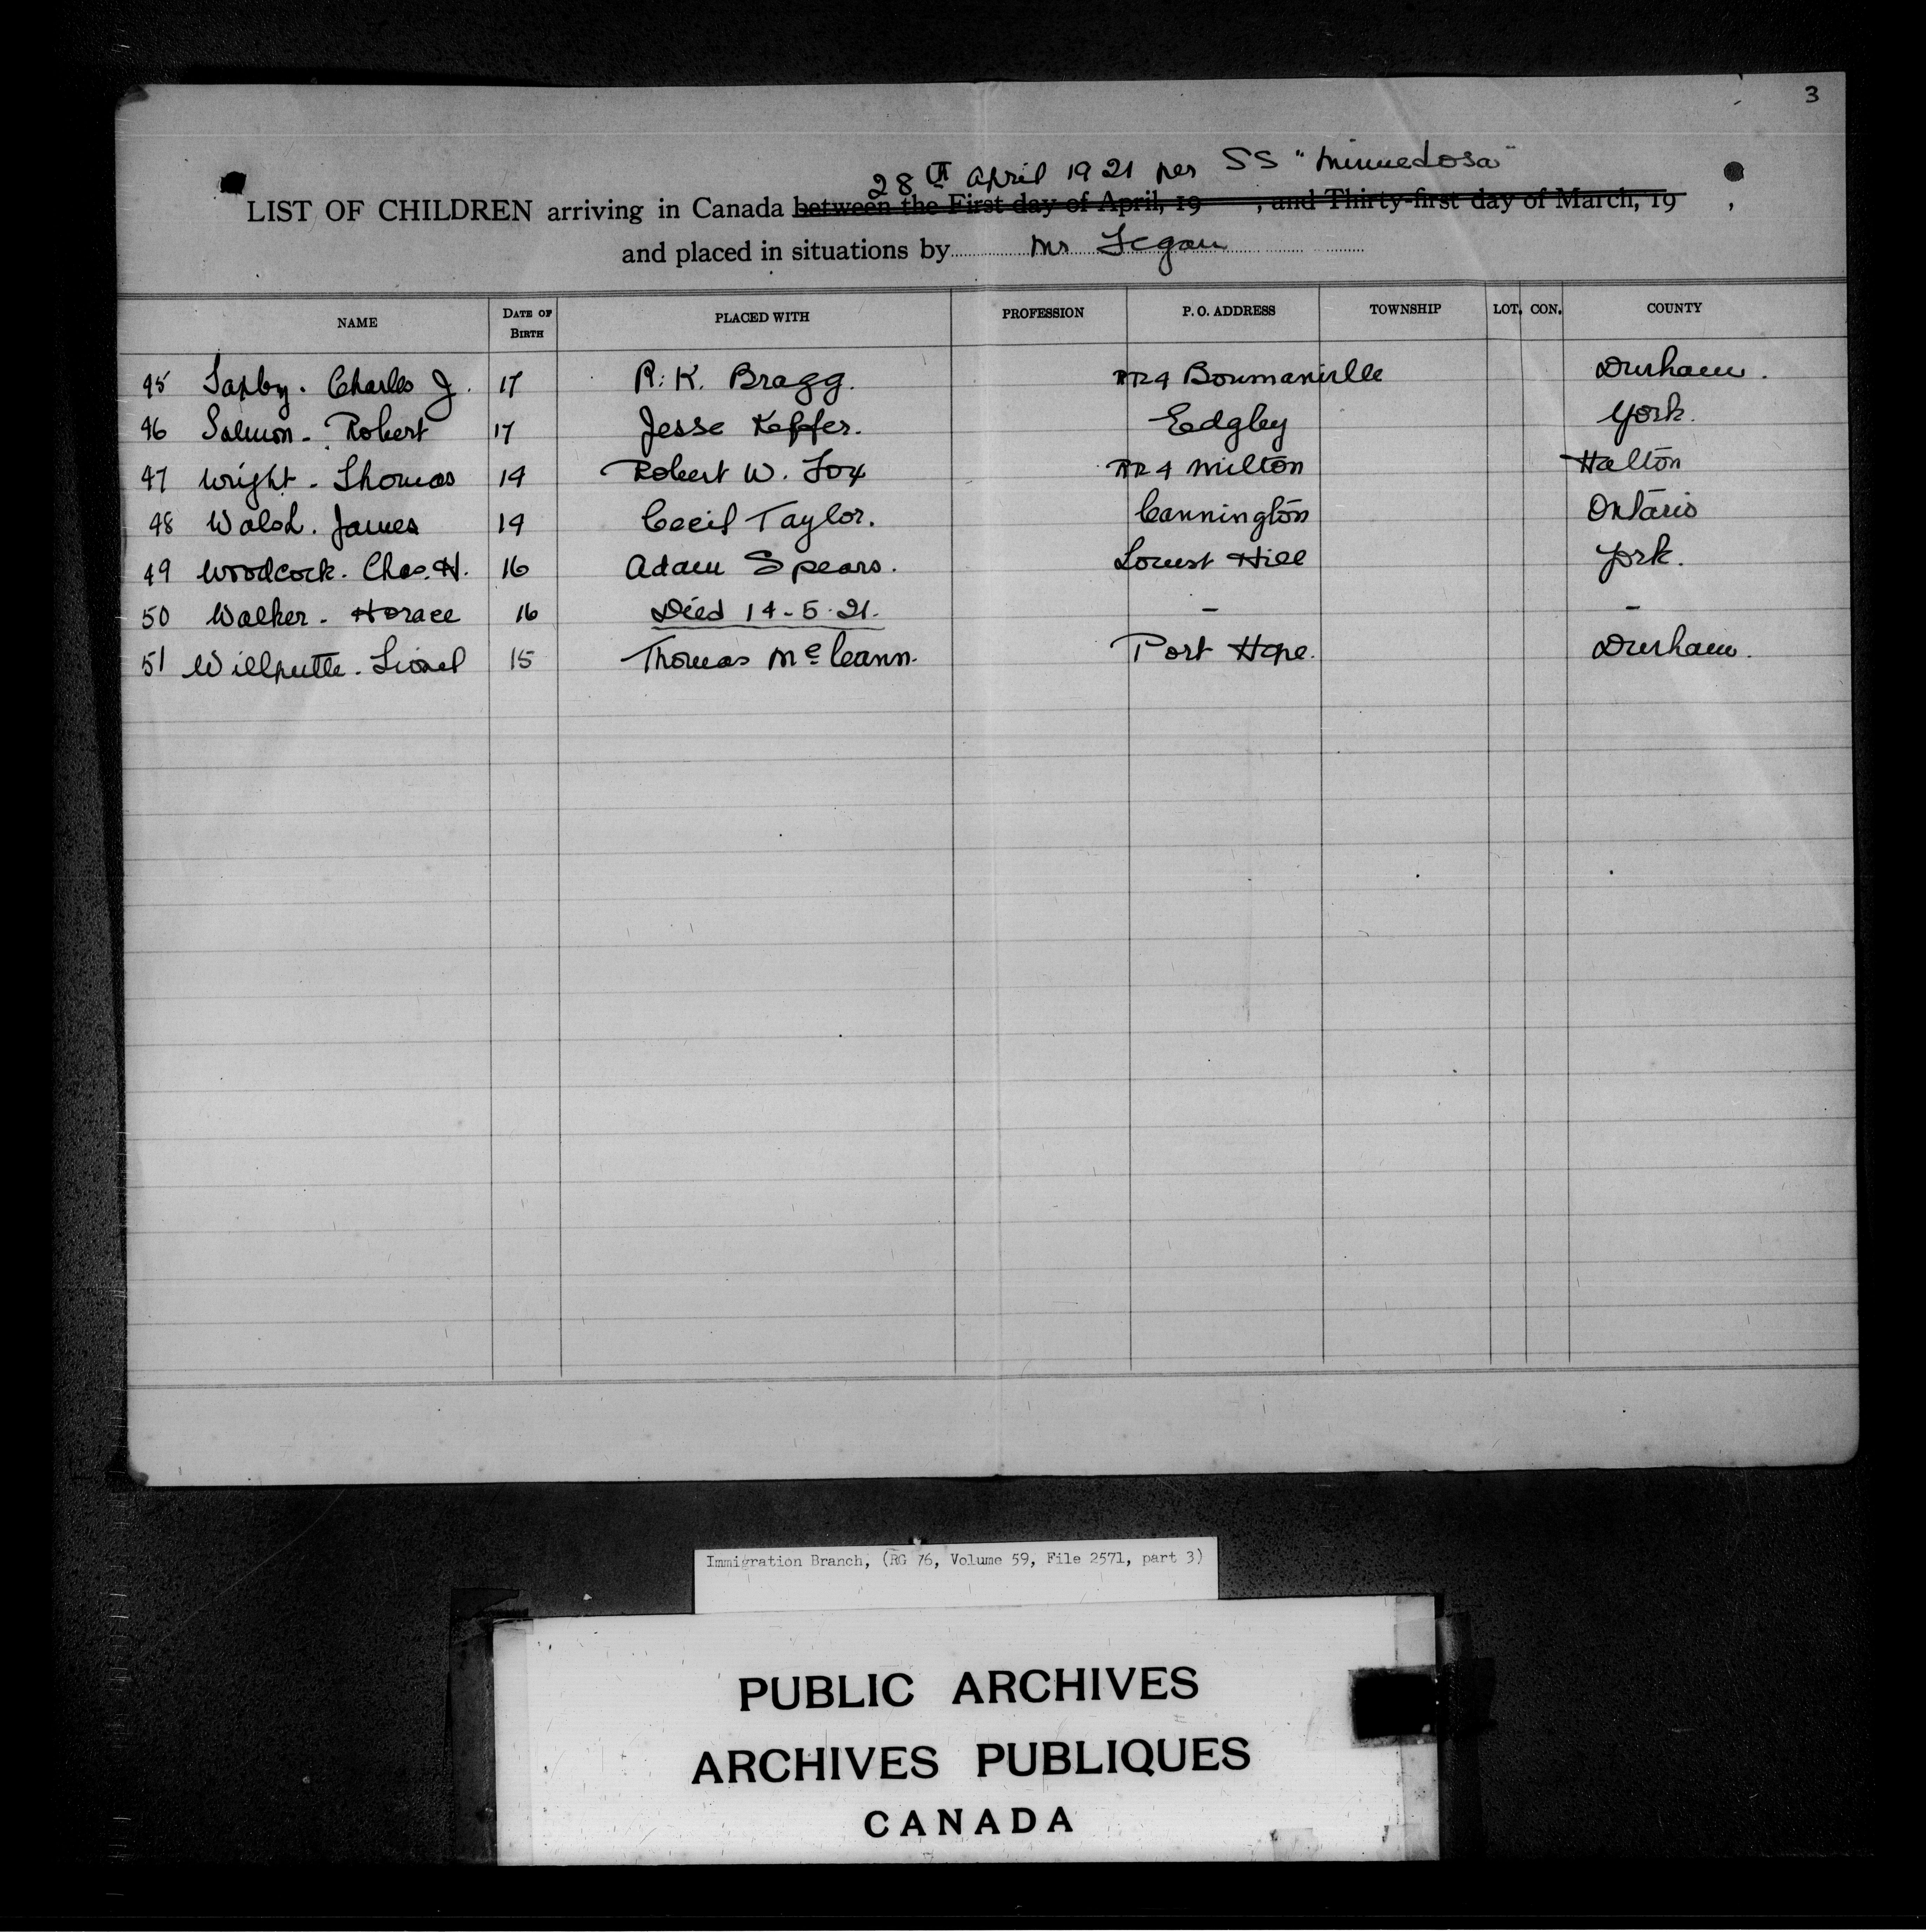 3
28th April 1921 per SS "Minnedosa"
LIST OF CHILDREN arriving in Canada between the First day of April, 19 , and Thirty-first day of March, 19 ,
and placed in situations by Mr Fegan
NAME DATE OF BIRTH PLACED WITH PROFESSION P. O. ADDRESS TOWNSHIP LOT. CON. COUNTY
45 Charles J. 17 R. K. Bragg. RR4 Bowmanville Durham.
46 Salmon - Robert 17 Jesse Keffer. Edgley York.
47 Wright - Thomas 14 Robert W. Fox RR4 Milton Halton
48 Walsh. James 14 Cecil Taylor. Cannington Ontario
49 Woodcock. Chas. H. 16 Adam Spears. Locust Hill York.
50 Walker - Horace 16 Died 14-5-21. - -
51 Willputte - Lionel 15 Thomas McCann. Port Hope. Durham.
Immigration Branch, (RG 76, Volume 59, File 2571, part 3)
PUBLIC ARCHIVES
ARCHIVES PUBLIQUES
CANADA